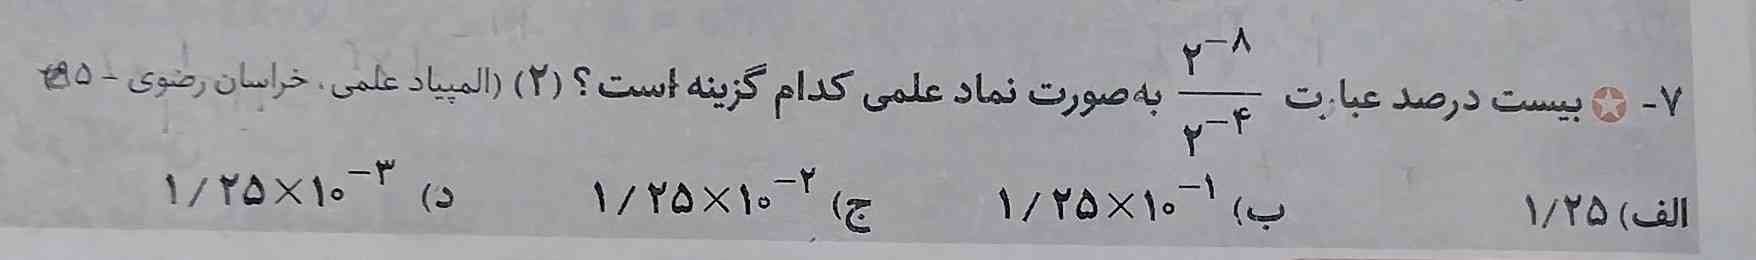 ۷- بیست درصد عبارت ۲⁻⁸/۲⁻⁴ به‌صورت نماد علمی کدام گزینه است؟ (۲) (المپیاد علمی، خراسان رضوی - ۹۵)
الف) ۱/۲۵ ب) ۱/۲۵×۱۰⁻¹ ج) ۱/۲۵×۱۰⁻² د) ۱/۲۵×۱۰⁻³